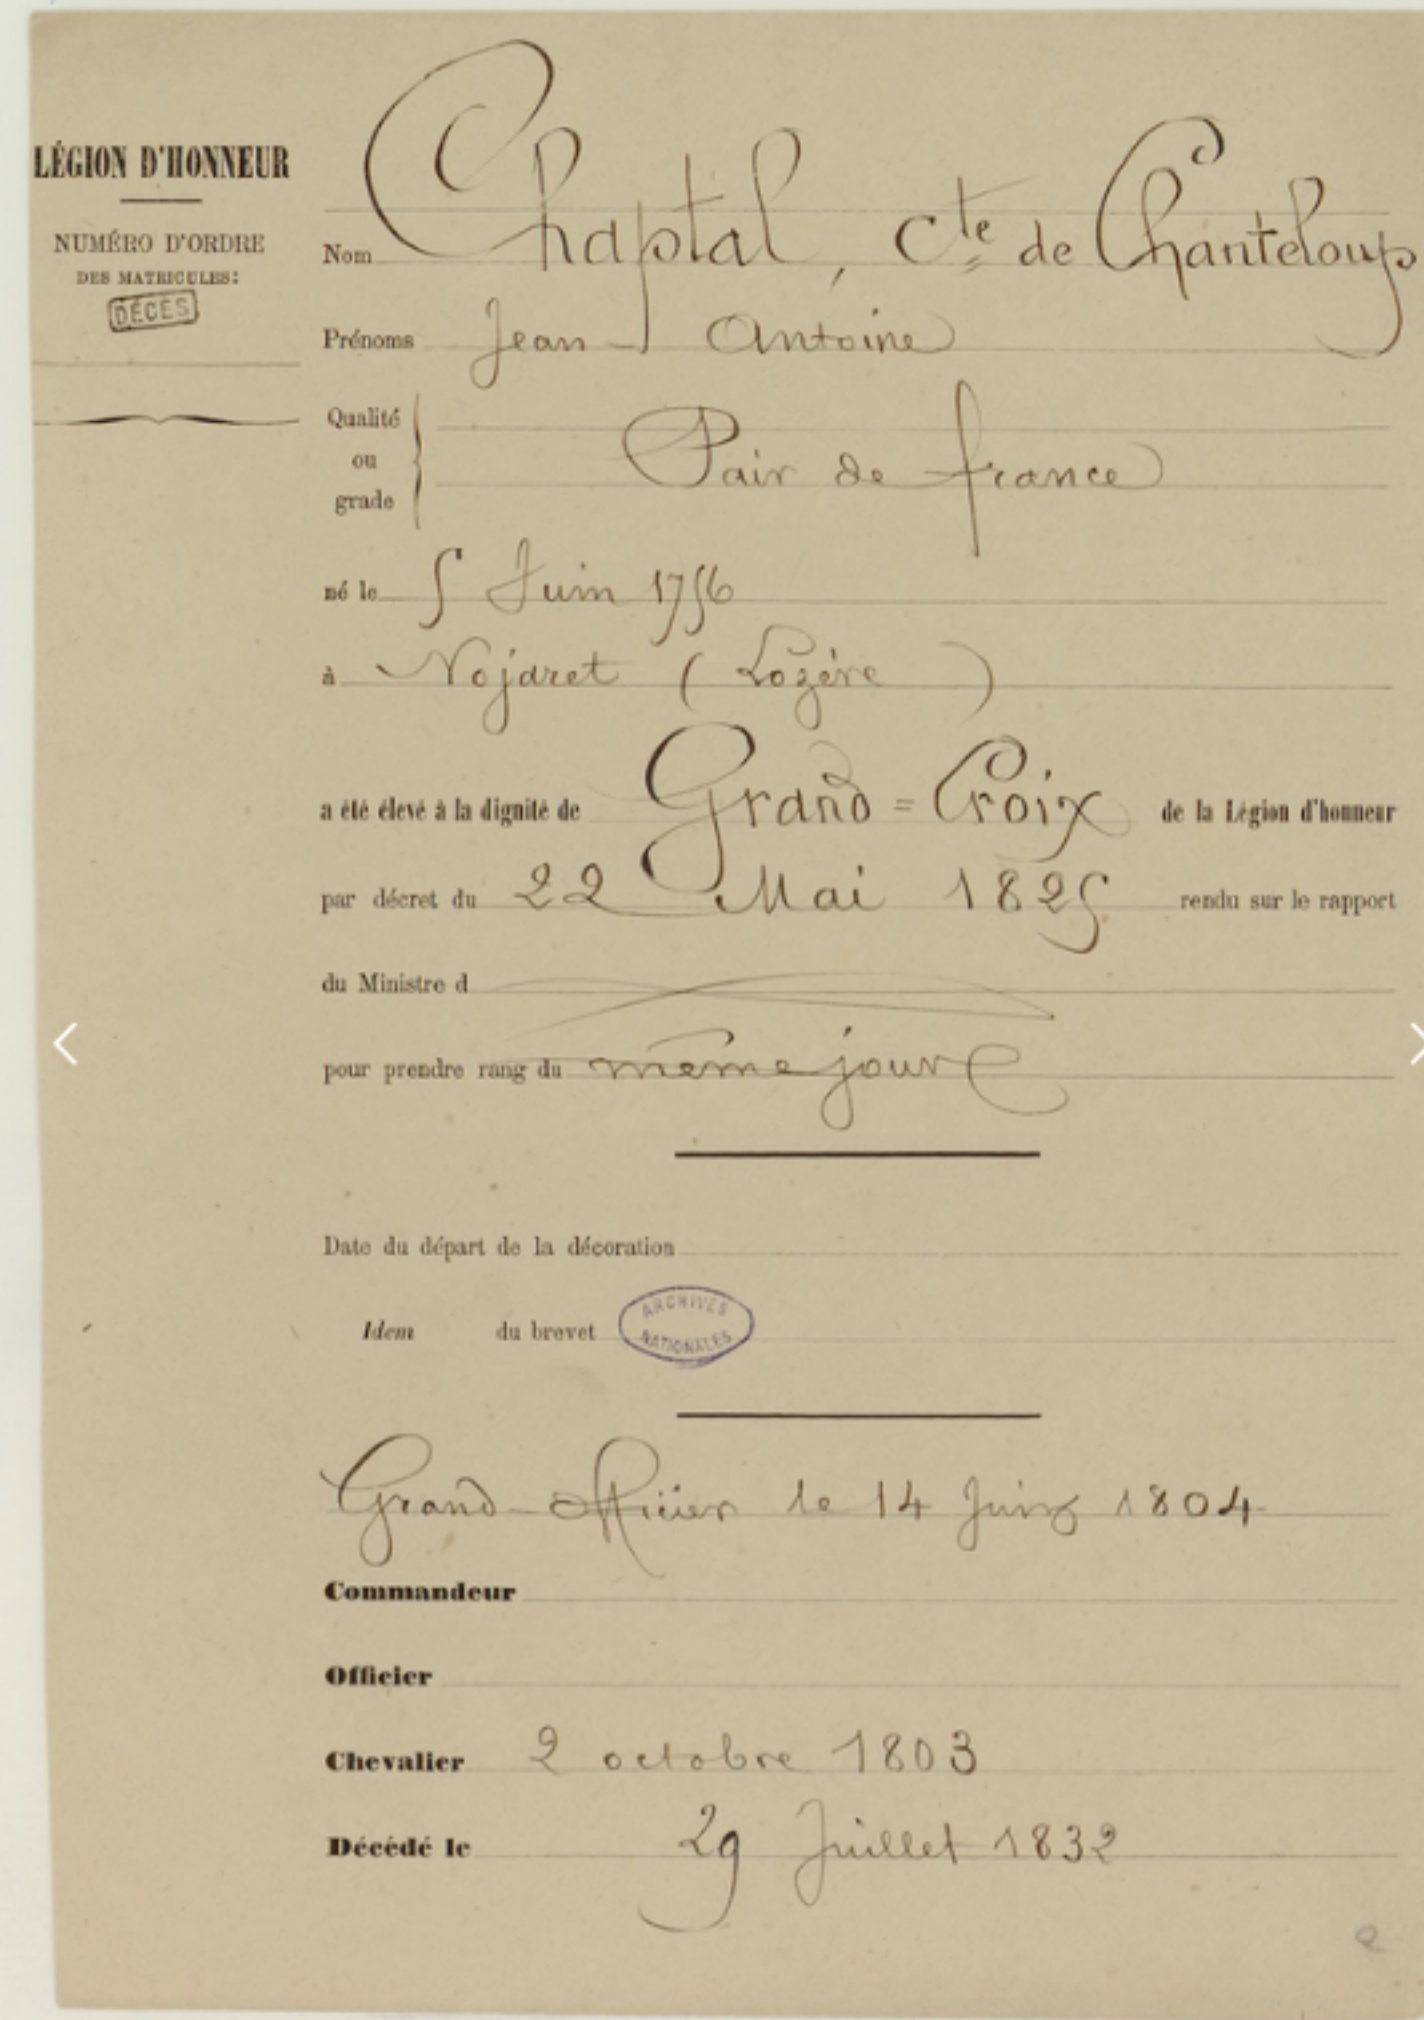 LÉGION D'HONNEUR
NUMÉRO D'ORDRE
DES MATRICULES:
DÉCÈS
Nom Chaptal, Cte de Chanteloup
Prénoms Jean-Antoine
Qualité
ou
grade
Pair de france
né le 5 Juin 1756
à Nojaret (Lozère)
a été élevé à la dignité de Grand=Croix de la Légion d'honneur
par décret du 22 Mai 1825 rendu sur le rapport
du Ministre d
pour prendre rang du même jour
Date du départ de la décoration
Idem du brevet
ARCHIVES
NATIONALES
Grand-officier le 14 Juin 1804
Commandeur
Officier
Chevalier 2 octobre 1803
Décédé le 29 Juillet 1832